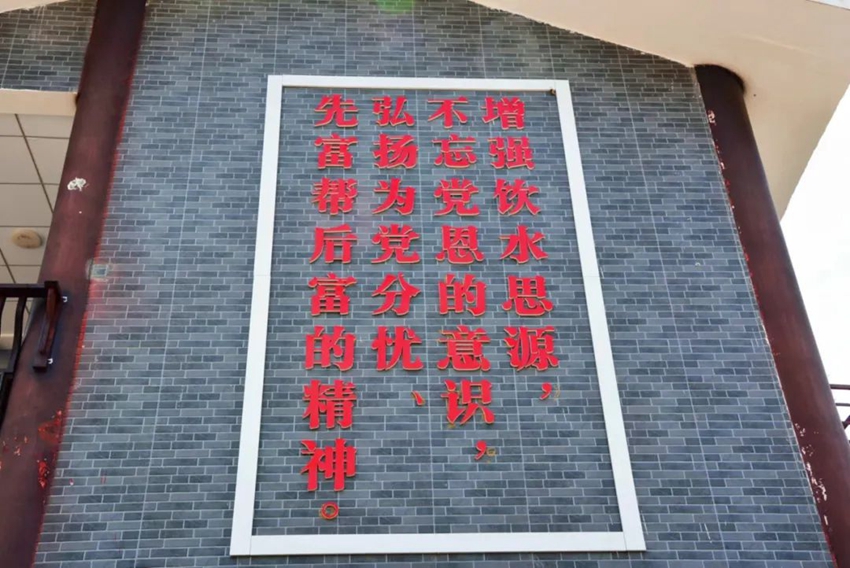 增强饮水思源，
不忘党恩的意识，
弘扬为党分忧、
先富帮后富的精神。